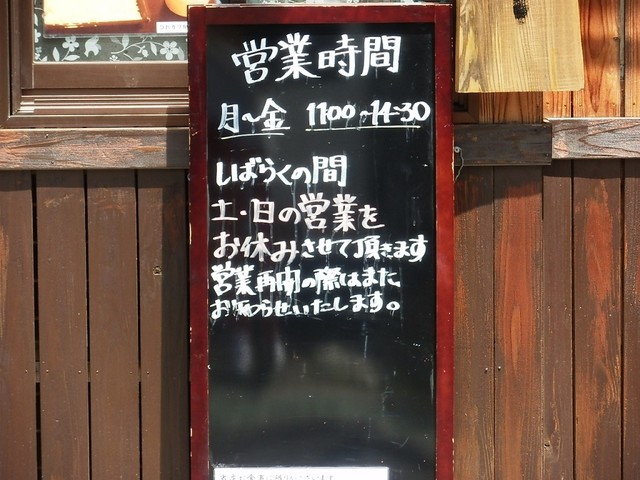 営業時間
月～金 11:00~14:30
しばらくの間
土・日の営業を
お休みさせて頂きます
営業再開の際はまた
お知らせいたします。